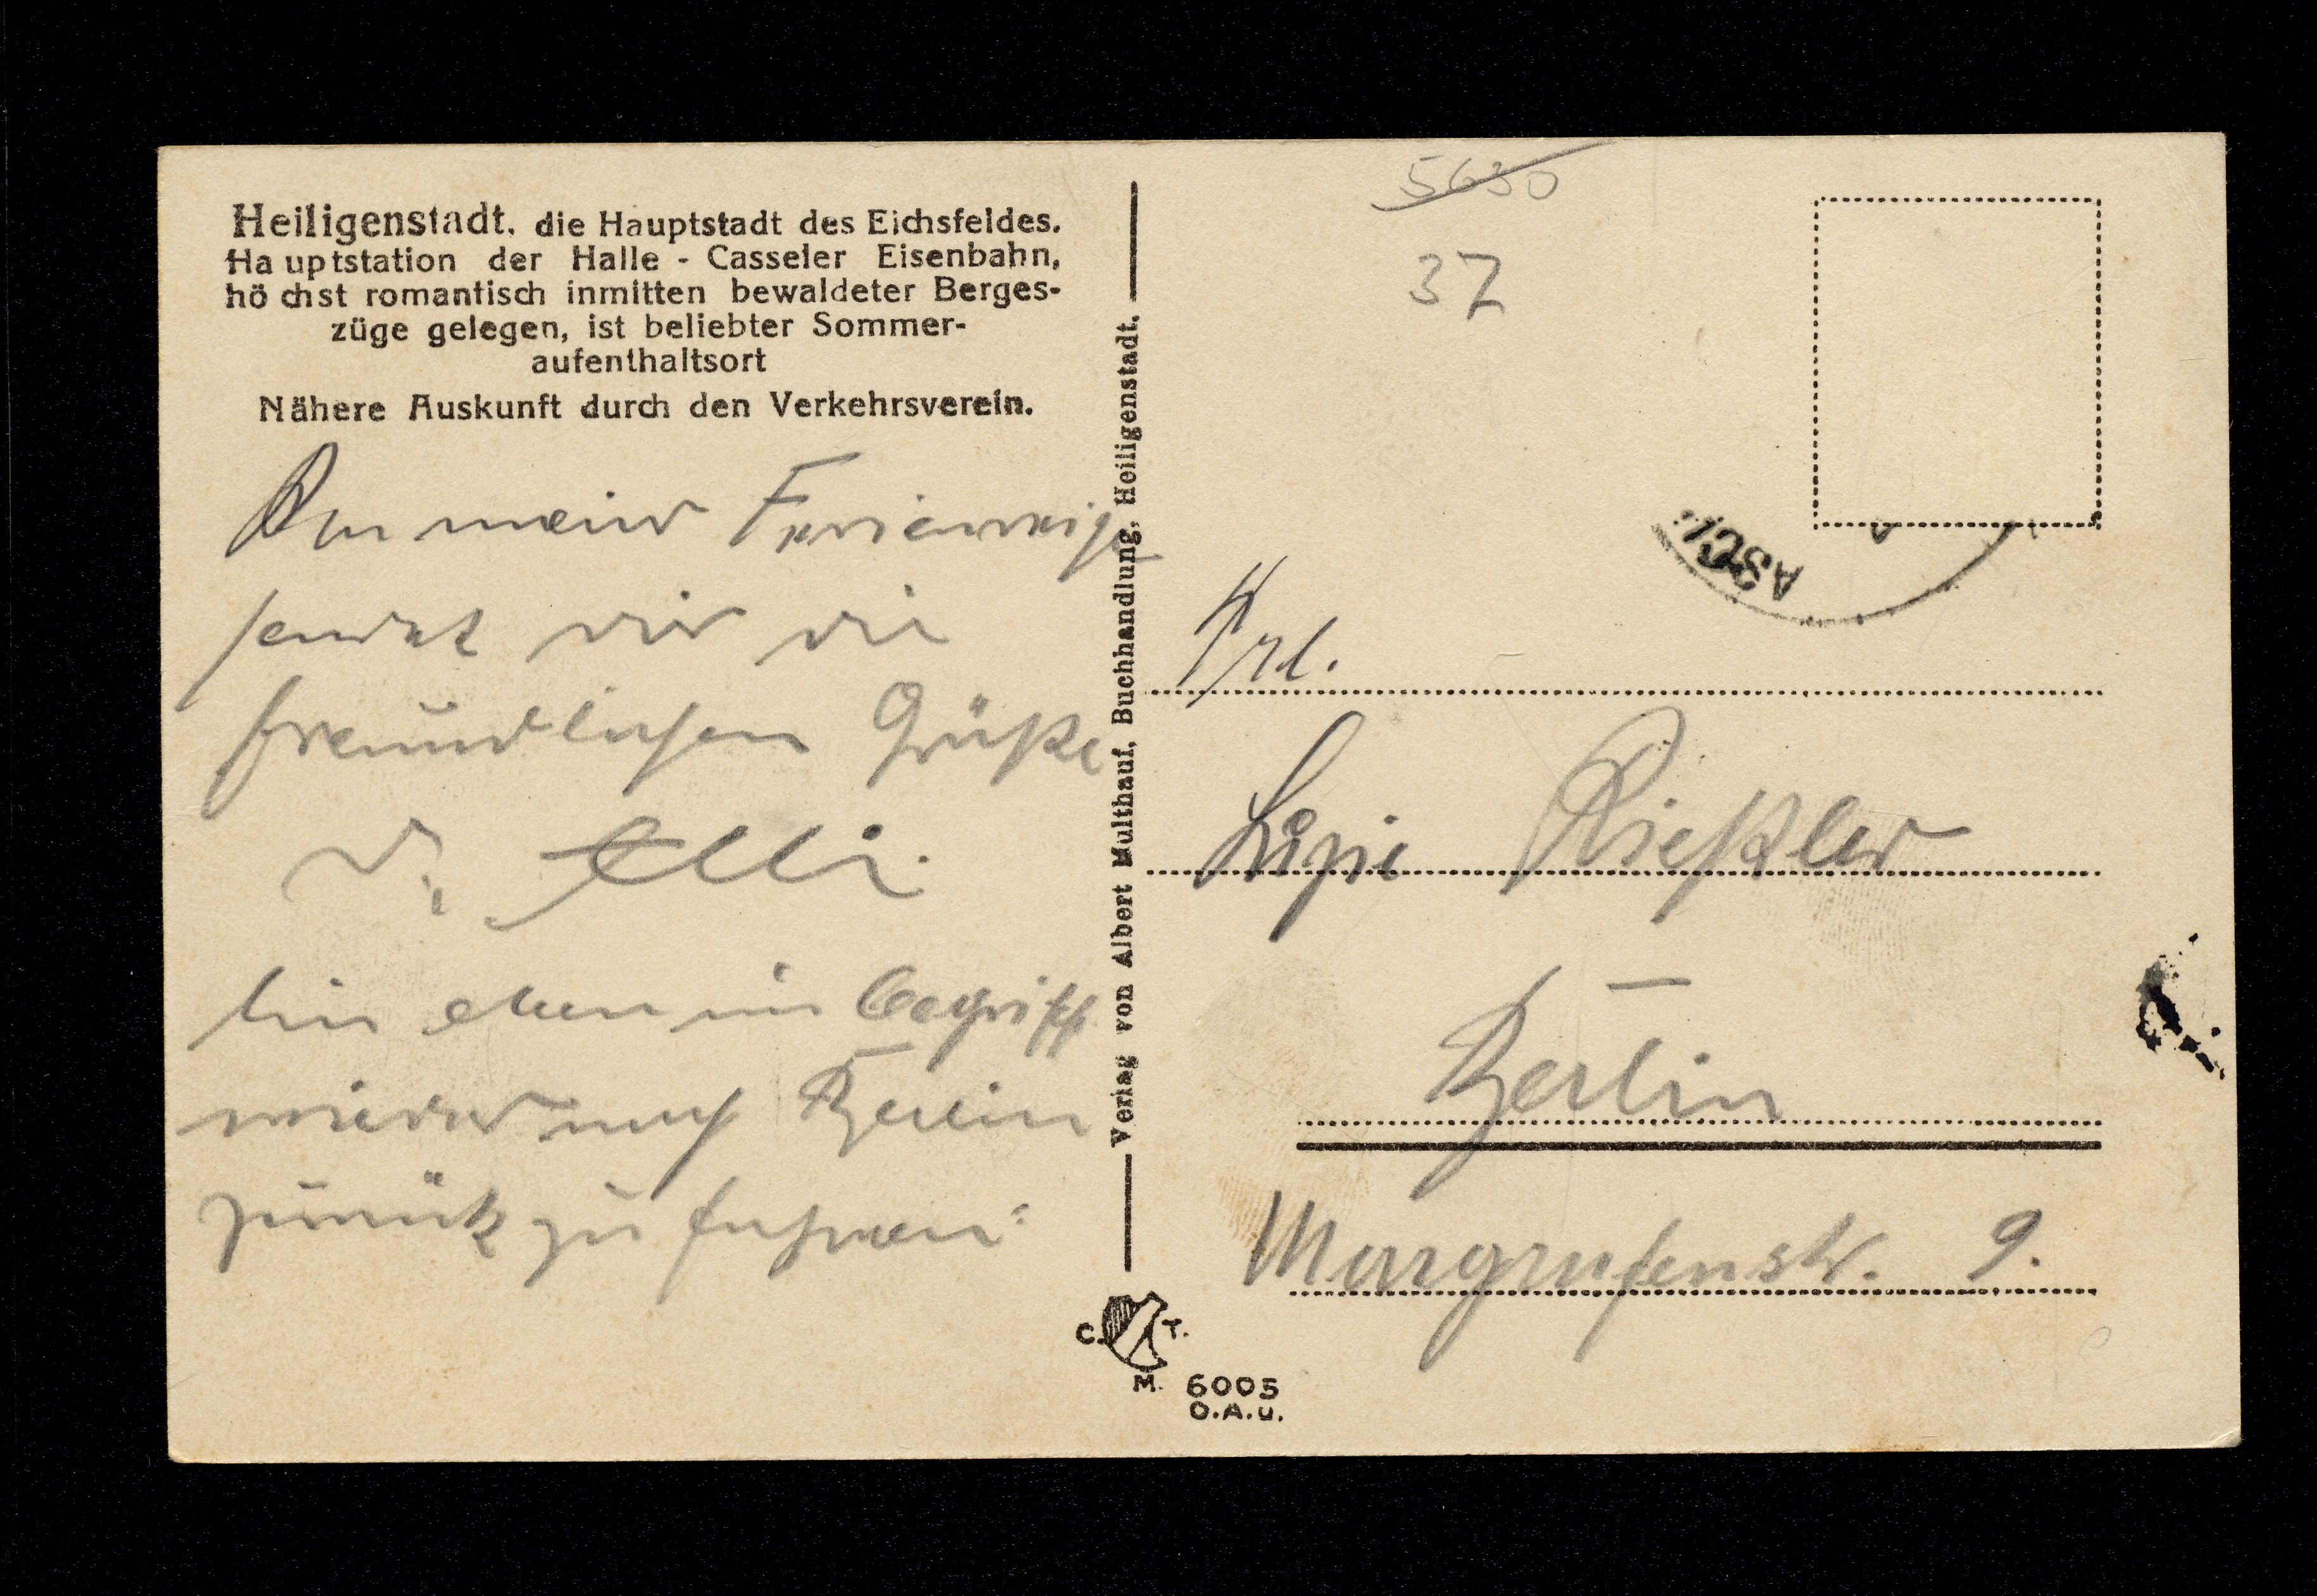 Heiligenstadt, die Hauptstadt des Eichsfeldes.
Hauptstation der Halle - Casseler Eisenbahn,
höchst romantisch inmitten bewaldeter Berges-
züge gelegen, ist beliebter Sommer-
aufenthaltsort
Nähere Auskunft durch den Verkehrsverein.
meiner Ferienreise
sendet dir die
freundlichsten Grüße
d. Elli.
bin eben im Begriff
wieder nach Berlin
zurück zu fahren.
Verlag von Albert Multhauf, Buchhandlung, Heiligenstadt.
5630
37
Frl.
Rießler
Berlin
Margrafenstr. 9.
C. T.
M. 6005
O.A.u.